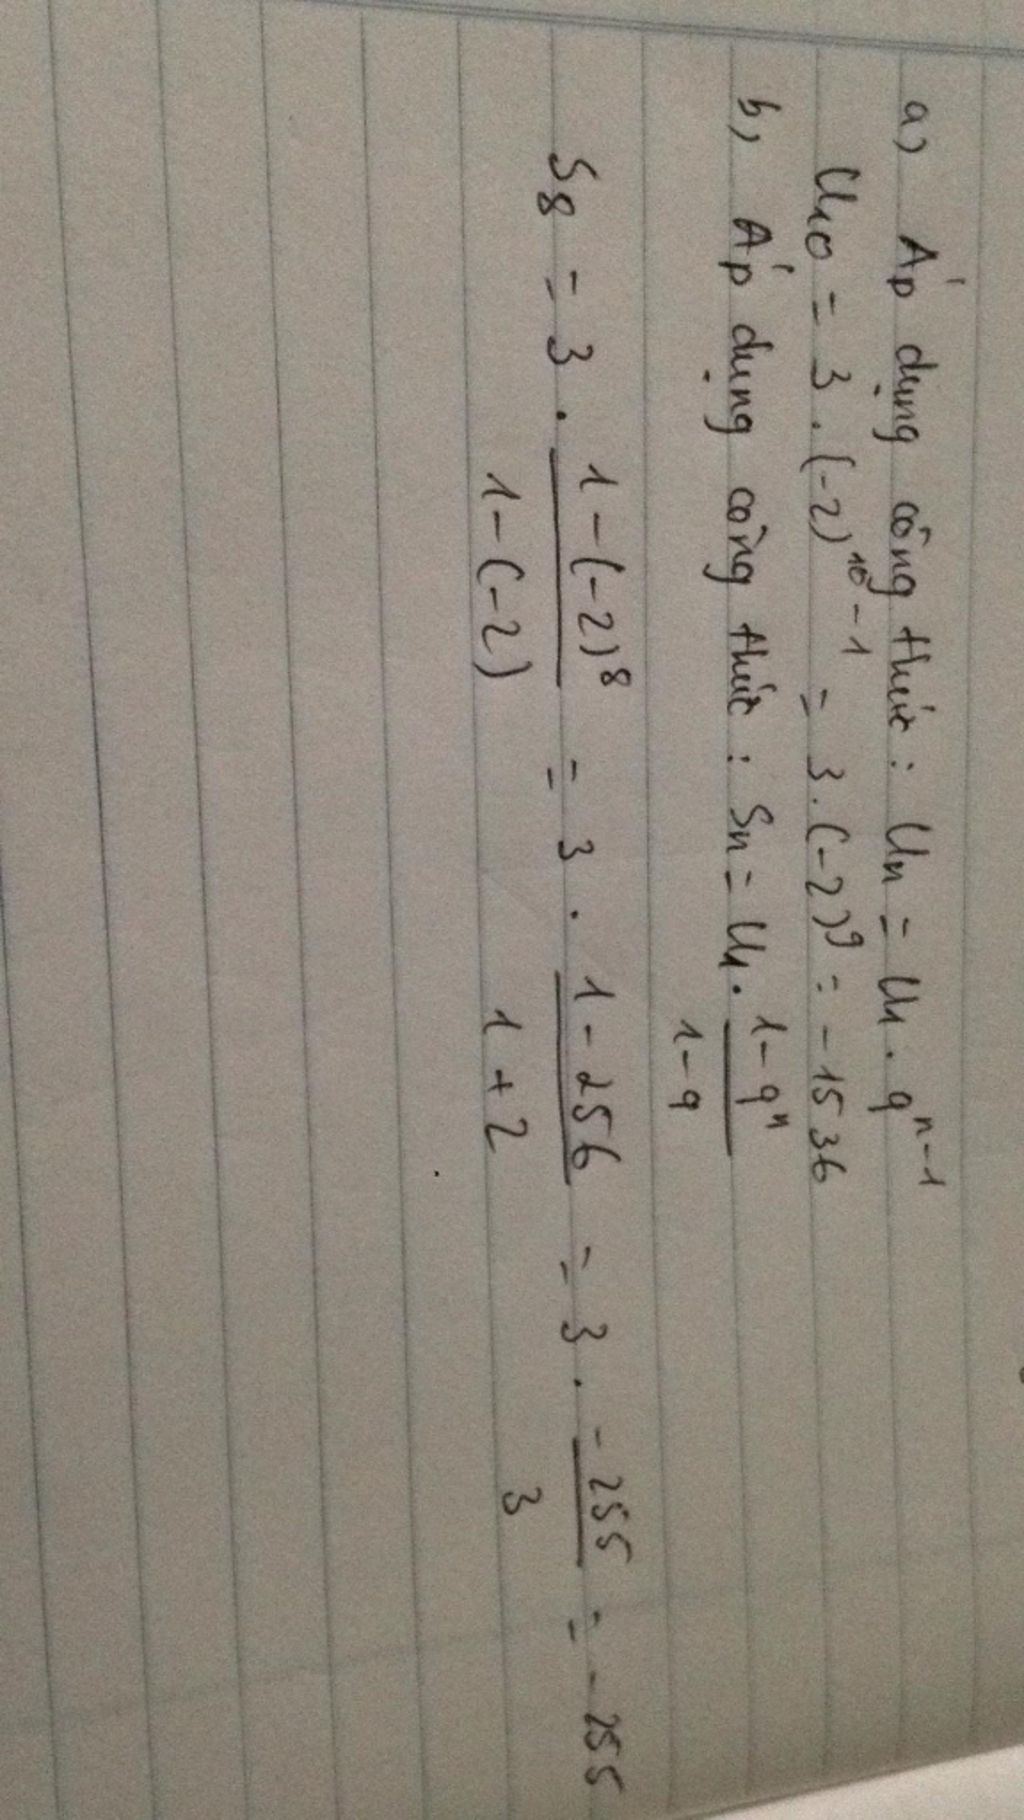 a) Áp dụng công thức : Un = U1 . q^n-1
U10 = 3 . (-2)^10-1 = 3 . (-2)^9 = -1536
b) Áp dụng công thức : Sn = U1 . 1-q^n / 1-q
S8 = 3 . 1-(-2)^8 / 1-(-2) = 3 . 1-256 / 1+2 = 3 . -255 / 3 = -255